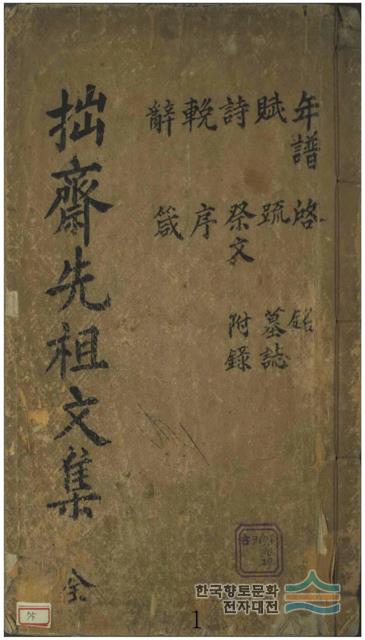 年譜 啓 銘
賦 疏 墓誌
詩 祭文 附錄
輓 序
辭 箴
拙齋先祖文集 全
한국향토문화
전자대전
1